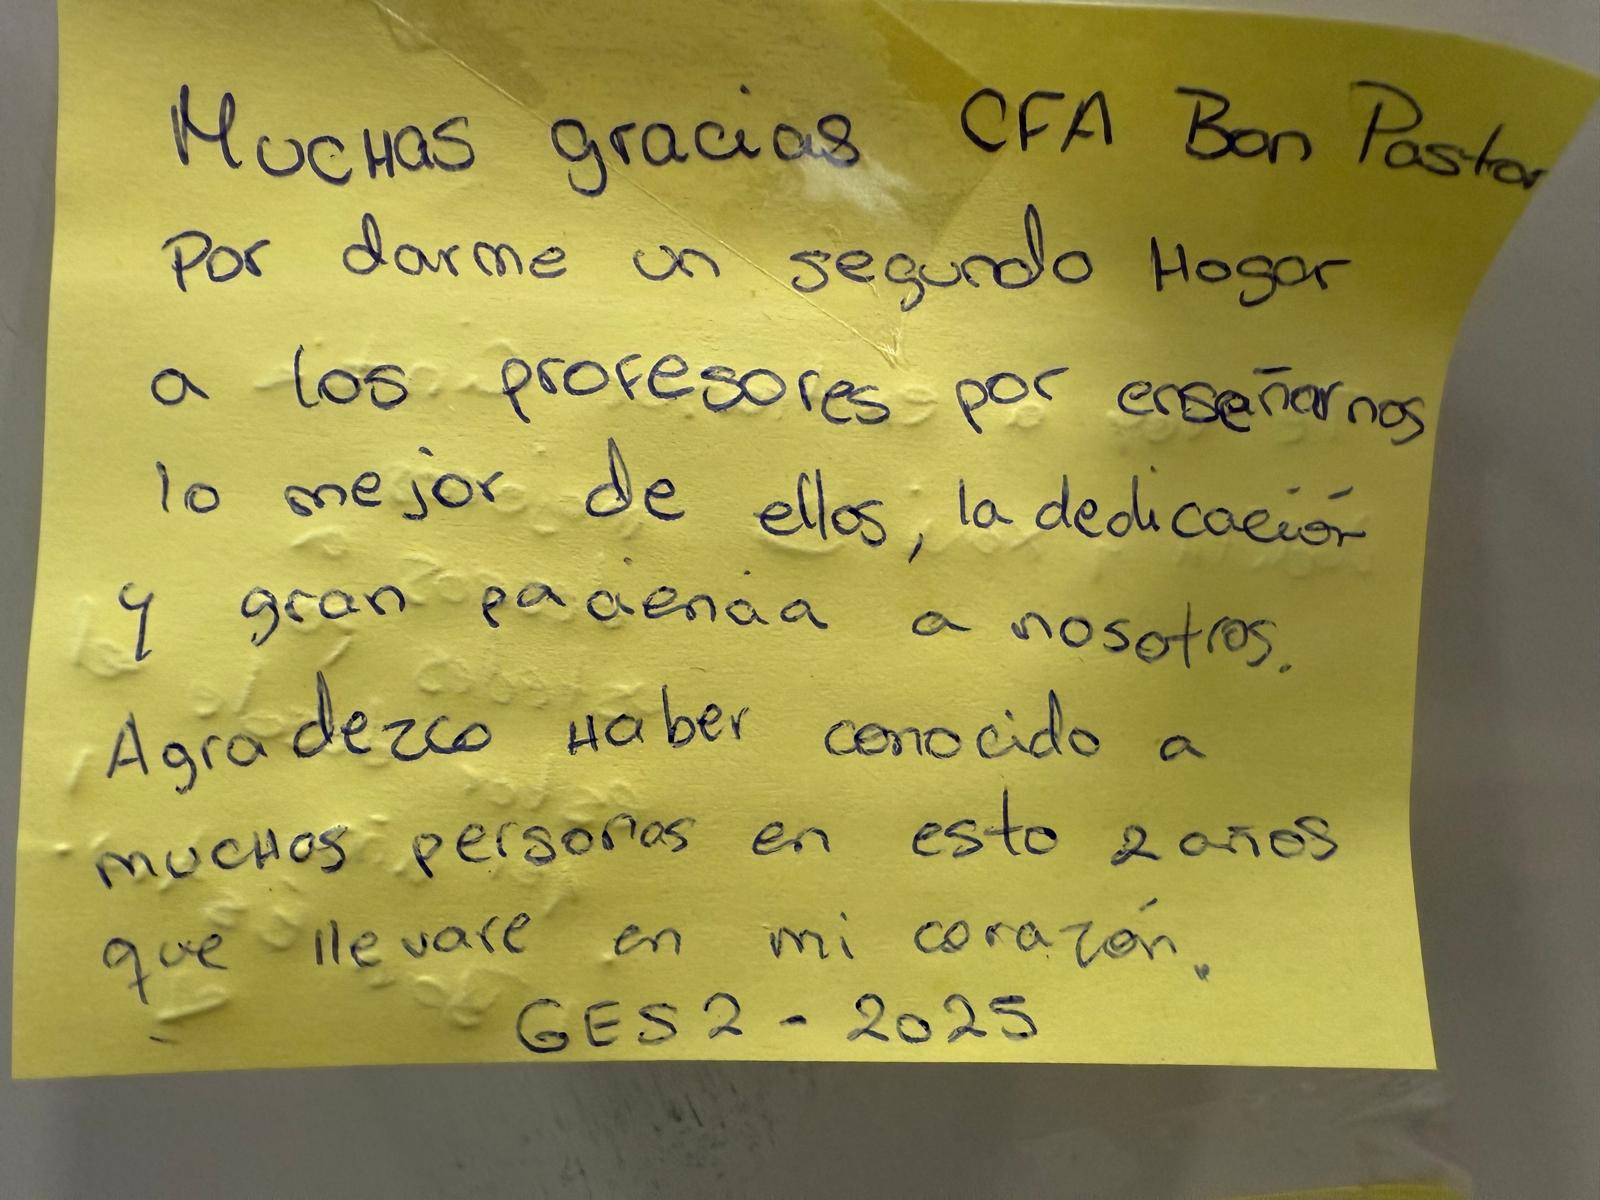 Muchas gracias CFA Bon Pastor
Por darme un segundo Hogar
a los profesores por enseñarnos
lo mejor de ellos, la dedicación
y gran paciencia a nosotros.
Agradezco Haber conocido a
muchos personas en esto 2 años
que llevare en mi corazón.
GES2 - 2025